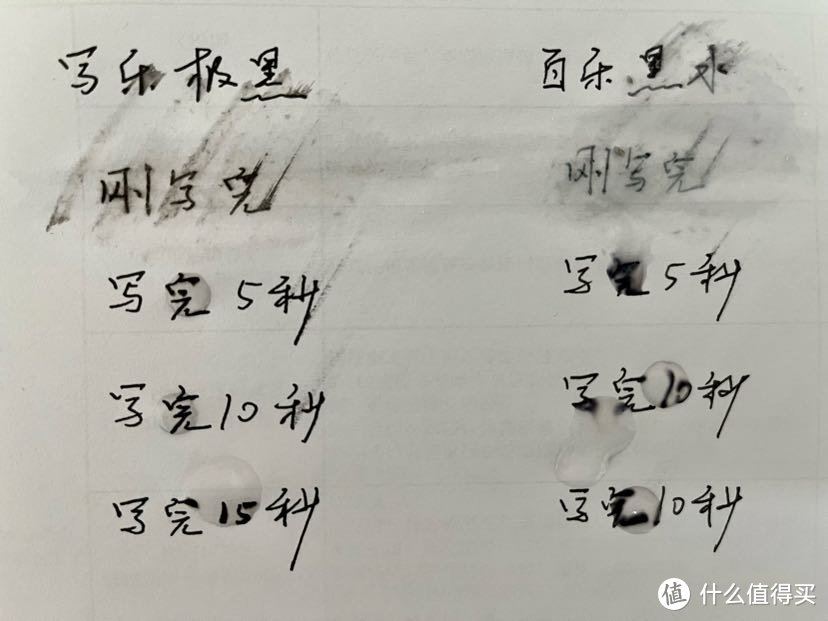 写乐极黑 百乐黑水
刚写完 刚写完
写完5秒 写完5秒
写完10秒 写完10秒
写完15秒 写完10秒
值 什么值得买